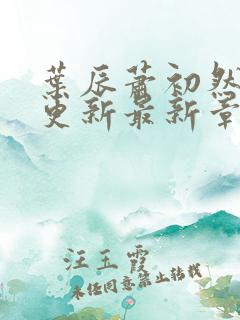 葉辰蕭初然
更新最新章
汪玉霞
未经同意禁止转载